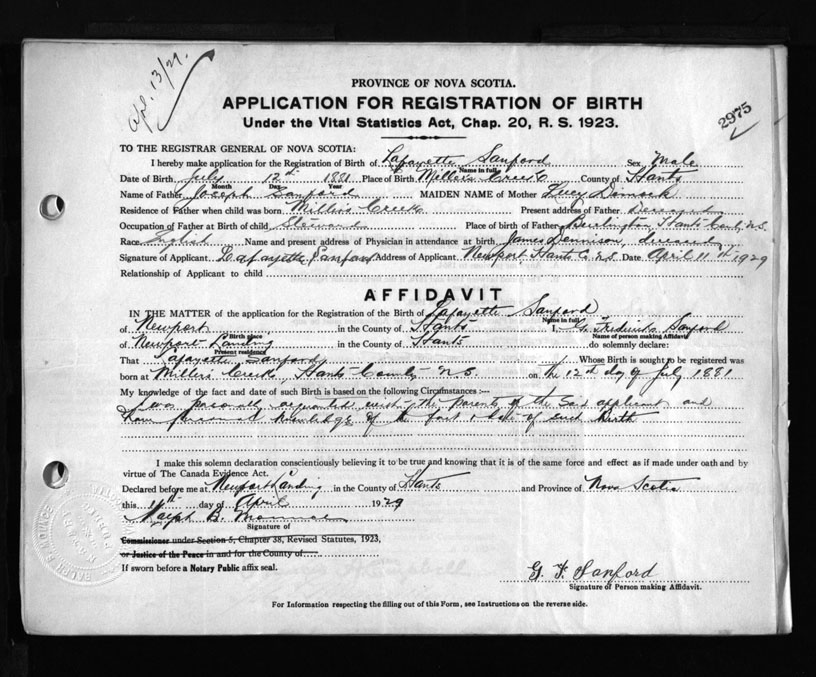 Apl. 13/29.
PROVINCE OF NOVA SCOTIA.
APPLICATION FOR REGISTRATION OF BIRTH
2975
Under the Vital Statistics Act, Chap. 20, R. S. 1923.
TO THE REGISTRAR GENERAL OF NOVA SCOTIA:
I hereby make application for the Registration of Birth of Lafayette Sanford Sex Male
Name in full
Date of Birth July 12th 1881 Place of Birth Millers Creek County of Hants
Month Day Year
Name of Father Joseph Sanford MAIDEN NAME of Mother Lucy
Residence of Father when child was born Millers Creek Present address of Father Deceased
Occupation of Father at Birth of Child Place of birth of Father Burlington, Hants County, N.S.
Race English Name and present address of Physician in attendance at birth James Dennison, deceased
Signature of Applicant Lafayette Sanford Address of Applicant Newport, Hants Co. N.S. Date April 11th 1929
Relationship of Applicant to child
AFFIDAVIT
IN THE MATTER of the application for the Registration of the Birth of Lafayette Sanford
Name in full
of Newport in the County of Hants I, G. Frederick Sanford
Birth place Name of person making Affidavit
of Newport Landing in the County of Hants do solemnly declare:
Present residence
That Lafayette Sanford Whose Birth is sought to be registered was
born at Millers Creek, Hants County N.S. on the 12th day of July 1881
My knowledge of the fact and date of such Birth is based on the following Circumstances :—
I was acquainted with the parents of the said applicant and
have personal knowledge of the fact & date of such birth
I make this solemn declaration conscientiously believing it to be true and knowing that it is of the same force and effect as if made under oath and by
virtue of The Canada Evidence Act.
Declared before me at Newport Landing in the County of Hants and Province of Nova Scotia
this 11th day of April 1929
Ralph B.
Signature of
Commissioner under Section 5, Chapter 38, Revised Statutes, 1923,
or Justice of the Peace in and for the County of
If sworn before a Notary Public affix seal.
G. F. Sanford
Signature of Person making Affidavit.
For Information respecting the filling out of this Form, see Instructions on the reverse side.